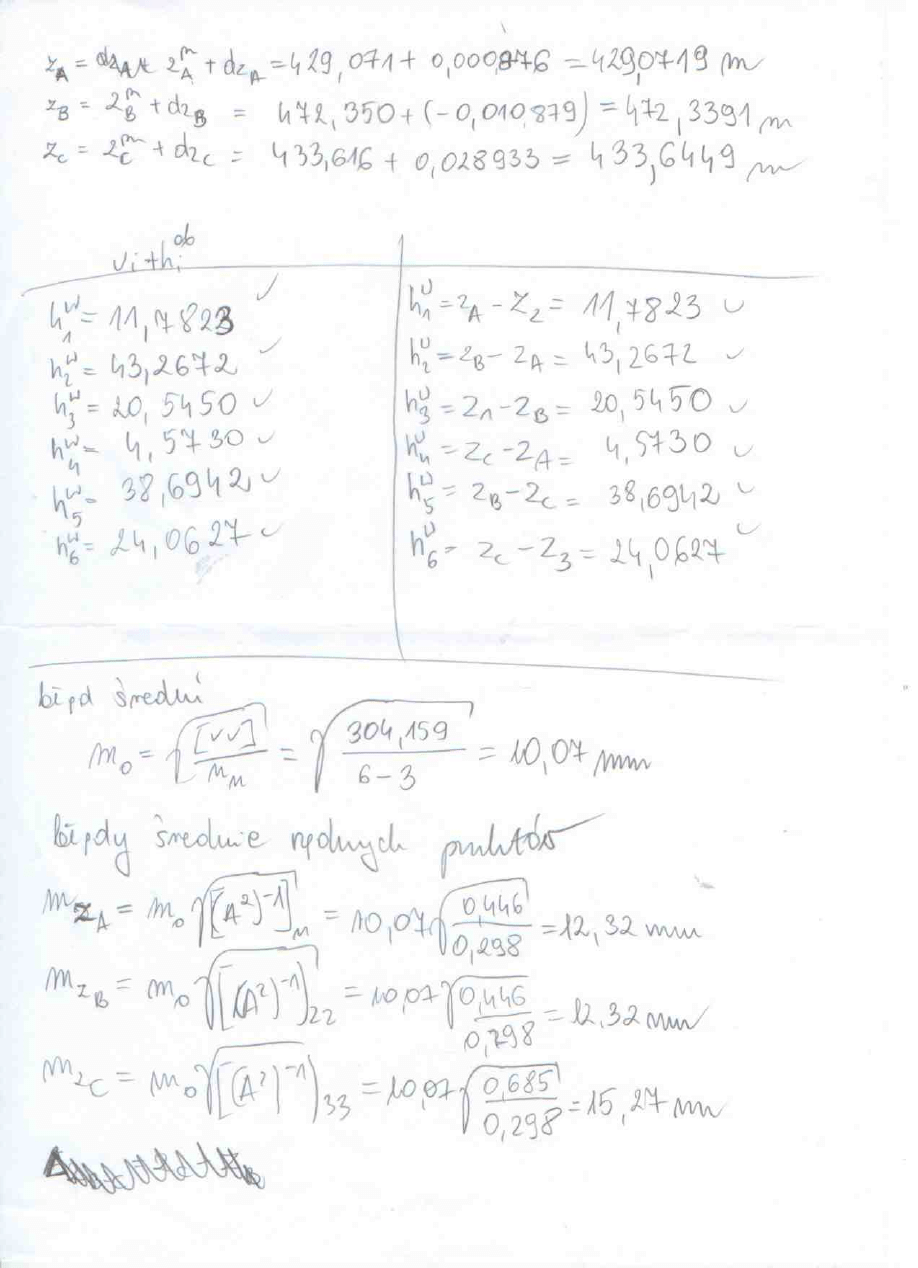 z_A = z_A^m + dz_A = 429,071 + 0,000876 = 429,0719 m
z_B = z_B^m + dz_B = 472,350 + (-0,010879) = 472,3391 m
z_C = z_C^m + dz_C = 433,616 + 0,028933 = 433,6449 m
v_i + h_i^ob
h_1^w = 11,7823 ✓ h_1^U = z_A - Z_2 = 11,7823 ✓
h_2^w = 43,2672 ✓ h_2^U = z_B - z_A = 43,2672 ✓
h_3^w = 20,5450 ✓ h_3^U = z_1 - z_B = 20,5450 ✓
h_4^w = 4,5730 ✓ h_4^U = z_C - z_A = 4,5730 ✓
h_5^w = 38,6942 ✓ h_5^U = z_B - z_C = 38,6942 ✓
h_6^w = 24,0627 ✓ h_6^U = z_C - Z_3 = 24,0627 ✓
błąd średni
m_0 = √([vv]/n_n) = √(304,159/(6-3)) = 10,07 mm
błędy średnie rzędnych punktów
m_{z_A} = m_0 √[(A²)^-1]_11 = 10,07 √(0,446/0,298) = 12,32 mm
m_{z_B} = m_0 √[(A²)^-1]_22 = 10,07 √(0,446/0,298) = 12,32 mm
m_{z_C} = m_0 √[(A²)^-1]_33 = 10,07 √(0,685/0,298) = 15,27 mm